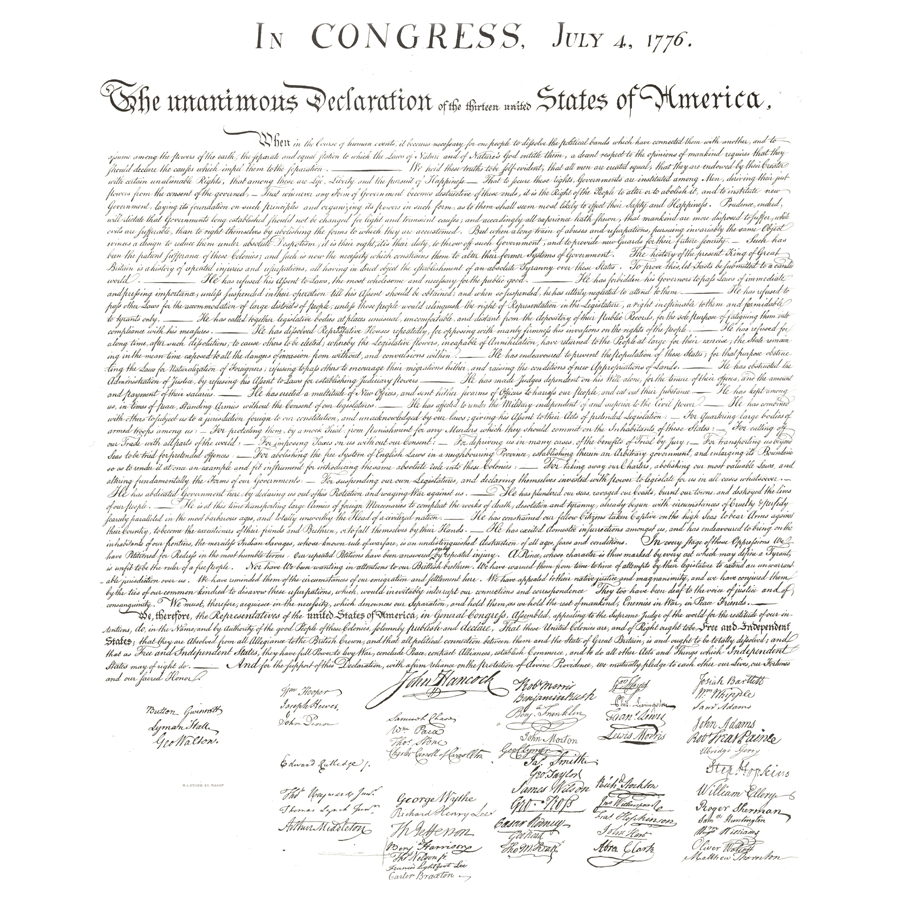 In CONGRESS, July 4, 1776.
The unanimous Declaration of the thirteen united States of America,
When in the Course of human events, it becomes necessary for one people to dissolve the political bands which have connected them with another, and to
assume among the powers of the earth, the separate and equal station to which the Laws of Nature and of Nature's God entitle them, a decent respect to the opinions of mankind requires that they
should declare the causes which impel them to the separation. — We hold these truths to be self-evident, that all men are created equal, that they are endowed by their Creator
with certain unalienable Rights, that among these are Life, Liberty and the pursuit of Happiness. — That to secure these rights, Governments are instituted among Men, deriving their just
powers from the consent of the governed, — That whenever any Form of Government becomes destructive of these ends, it is the Right of the People to alter or to abolish it, and to institute new
Government, laying its foundation on such principles and organizing its powers in such form, as to them shall seem most likely to effect their Safety and Happiness. Prudence, indeed,
will dictate that Governments long established should not be changed for light and transient causes; and accordingly all experience hath shewn, that mankind are more disposed to suffer, while
evils are sufferable, than to right themselves by abolishing the forms to which they are accustomed. But when a long train of abuses and usurpations, pursuing invariably the same Object
evinces a design to reduce them under absolute Despotism, it is their right, it is their duty, to throw off such Government, and to provide new Guards for their future security. — Such has
been the patient sufferance of these Colonies; and such is now the necessity which constrains them to alter their former Systems of Government. The history of the present King of Great
Britain is a history of repeated injuries and usurpations, all having in direct object the establishment of an absolute Tyranny over these States. To prove this, let Facts be submitted to a candid
world. — He has refused his Assent to Laws, the most wholesome and necessary for the public good. — He has forbidden his Governors to pass Laws of immediate
and pressing importance, unless suspended in their operation till his Assent should be obtained; and when so suspended, he has utterly neglected to attend to them. — He has refused to
pass other Laws for the accommodation of large districts of people, unless those people would relinquish the right of Representation in the Legislature, a right inestimable to them and formidable
to tyrants only. — He has called together legislative bodies at places unusual, uncomfortable, and distant from the depository of their public Records, for the sole purpose of fatiguing them into
compliance with his measures. — He has dissolved Representative Houses repeatedly, for opposing with manly firmness his invasions on the rights of the people. — He has refused for
a long time, after such dissolutions, to cause others to be elected; whereby the Legislative powers, incapable of Annihilation, have returned to the People at large for their exercise; the State remain-
ing in the mean time exposed to all the dangers of invasion from without, and convulsions within. — He has endeavoured to prevent the population of these States; for that purpose obstruc-
ting the Laws for Naturalization of Foreigners; refusing to pass others to encourage their migrations hither, and raising the conditions of new Appropriations of Lands. — He has obstructed the
Administration of Justice, by refusing his Assent to Laws for establishing Judiciary powers. — He has made Judges dependent on his Will alone, for the tenure of their offices, and the amount
and payment of their salaries. — He has erected a multitude of New Offices, and sent hither swarms of Officers to harrass our people, and eat out their substance. — He has kept among
us, in times of peace, Standing Armies without the Consent of our legislatures. — He has affected to render the Military independent of and superior to the Civil power. — He has combined
with others to subject us to a jurisdiction foreign to our constitution, and unacknowledged by our laws; giving his Assent to their Acts of pretended Legislation: — For Quartering large bodies of
armed troops among us: — For protecting them, by a mock Trial, from punishment for any Murders which they should commit on the Inhabitants of these States: — For cutting off
our Trade with all parts of the world: — For imposing Taxes on us without our Consent: — For depriving us in many cases, of the benefits of Trial by Jury: — For transporting us beyond
Seas to be tried for pretended offences — For abolishing the free System of English Laws in a neighbouring Province, establishing therein an Arbitrary government, and enlarging its Boundaries
so as to render it at once an example and fit instrument for introducing the same absolute rule into these Colonies: — For taking away our Charters, abolishing our most valuable Laws, and
altering fundamentally the Forms of our Governments: — For suspending our own Legislatures, and declaring themselves invested with power to legislate for us in all cases whatsoever. —
He has abdicated Government here, by declaring us out of his Protection and waging War against us. — He has plundered our seas, ravaged our Coasts, burnt our towns, and destroyed the lives
of our people. — He is at this time transporting large Armies of foreign Mercenaries to compleat the works of death, desolation and tyranny, already begun with circumstances of Cruelty & perfidy
scarcely paralleled in the most barbarous ages, and totally unworthy the Head of a civilized nation. — He has constrained our fellow Citizens taken Captive on the high Seas to bear Arms against
their Country, to become the executioners of their friends and Brethren, or to fall themselves by their Hands. — He has excited domestic insurrections amongst us, and has endeavoured to bring on the
inhabitants of our frontiers, the merciless Indian Savages, whose known rule of warfare, is an undistinguished destruction of all ages, sexes and conditions. In every stage of these Oppressions We
have Petitioned for Redress in the most humble terms: Our repeated Petitions have been answered only by repeated injury. A Prince, whose character is thus marked by every act which may define a Tyrant,
is unfit to be the ruler of a free people. Nor have We been wanting in attentions to our Brittish brethren. We have warned them from time to time of attempts by their legislature to extend an unwarrant-
able jurisdiction over us. We have reminded them of the circumstances of our emigration and settlement here. We have appealed to their native justice and magnanimity, and we have conjured them
by the ties of our common kindred to disavow these usurpations, which, would inevitably interrupt our connections and correspondence. They too have been deaf to the voice of justice and of
consanguinity. We must, therefore, acquiesce in the necessity, which denounces our Separation, and hold them, as we hold the rest of mankind, Enemies in War, in Peace Friends. —
We, therefore, the Representatives of the united States of America, in General Congress, Assembled, appealing to the Supreme Judge of the world for the rectitude of our in-
tentions, do, in the Name, and by Authority of the good People of these Colonies, solemnly publish and declare, That these United Colonies are, and of Right ought to be Free and Independent
States; that they are Absolved from all Allegiance to the British Crown, and that all political connection between them and the State of Great Britain, is and ought to be totally dissolved; and
that as Free and Independent States, they have full Power to levy War, conclude Peace, contract Alliances, establish Commerce, and to do all other Acts and Things which Independent
States may of right do. — And for the support of this Declaration, with a firm reliance on the protection of divine Providence, we mutually pledge to each other our Lives, our Fortunes
and our sacred Honor.
Button Gwinnett
Lyman Hall
Geo Walton.
Wm Hooper
Joseph Hewes,
John Penn
Edward Rutledge /.
Thos Heyward Junr.
Thomas Lynch Junr.
Arthur Middleton
John Hancock
Samuel Chase
Wm Paca
Thos Stone
Charles Carroll of Carrollton
George Wythe
Richard Henry Lee
Th Jefferson
Benj Harrison
Thos Nelson jr.
Francis Lightfoot Lee
Carter Braxton
Robt Morris
Benjamin Rush
Benj. Franklin
John Morton
Geo Clymer
Jas. Smith
Geo. Taylor
James Wilson
Geo. Ross
Caesar Rodney
Geo Read
Tho M:Kean
Wm Floyd
Phil. Livingston
Frans. Lewis
Lewis Morris
Richd. Stockton
Jno Witherspoon
Fras. Hopkinson
John Hart
Abra Clark
Josiah Bartlett
Wm Whipple
Saml Adams
John Adams
Robt Treat Paine
Elbridge Gerry
Step Hopkins
William Ellery
Roger Sherman
Saml Huntington
Wm Williams
Oliver Wolcott
Matthew Thornton